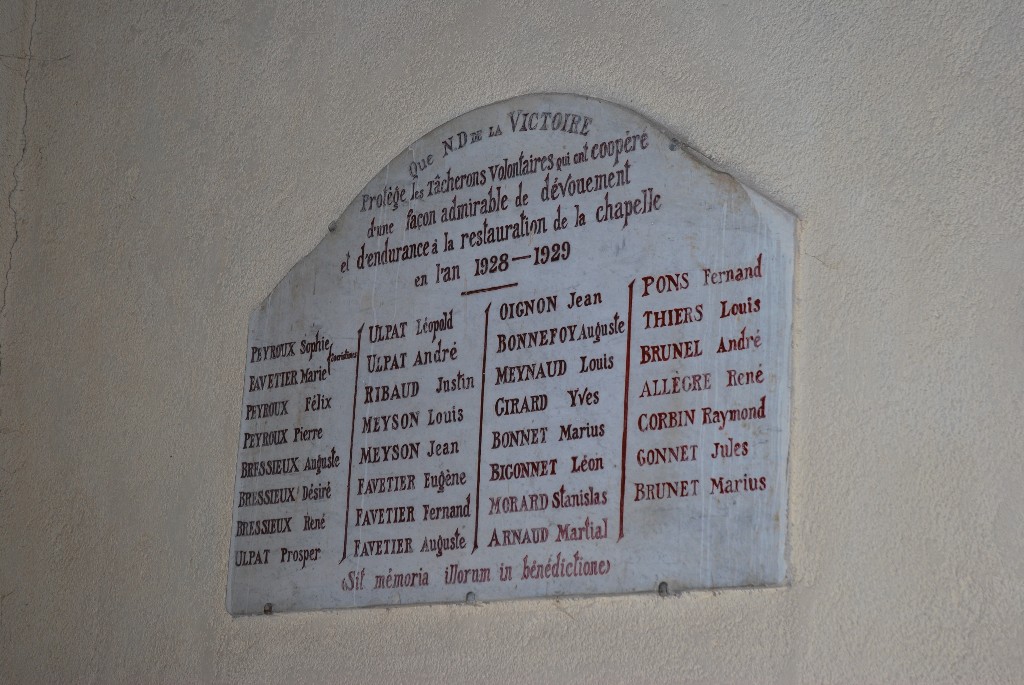 Que N.D DE LA VICTOIRE
Protège les Tâcherons volontaires qui ont coopéré
d'une façon admirable de dévouement
et d'endurance à la restauration de la chapelle
en l'an 1928-1929
PEYROUX Sophie
FAVETIER Marie
PEYROUX Félix
PEYROUX Pierre
BRESSIEUX Auguste
BRESSIEUX Désiré
BRESSIEUX René
ULPAT Prosper
ULPAT Léopold
ULPAT André
RIBAUD Justin
MEYSON Louis
MEYSON Jean
FAVETIER Eugène
FAVETIER Fernand
FAVETIER Auguste
OIGNON Jean
BONNEFOY Auguste
MEYNAUD Louis
GIRARD Yves
BONNET Marius
BIGONNET Léon
MORARD Stanislas
ARNAUD Martial
PONS Fernand
THIERS Louis
BRUNEL André
ALLÈGRE René
CORBIN Raymond
GONNET Jules
BRUNET Marius
«Sit mémoria illorum in bénédictione»